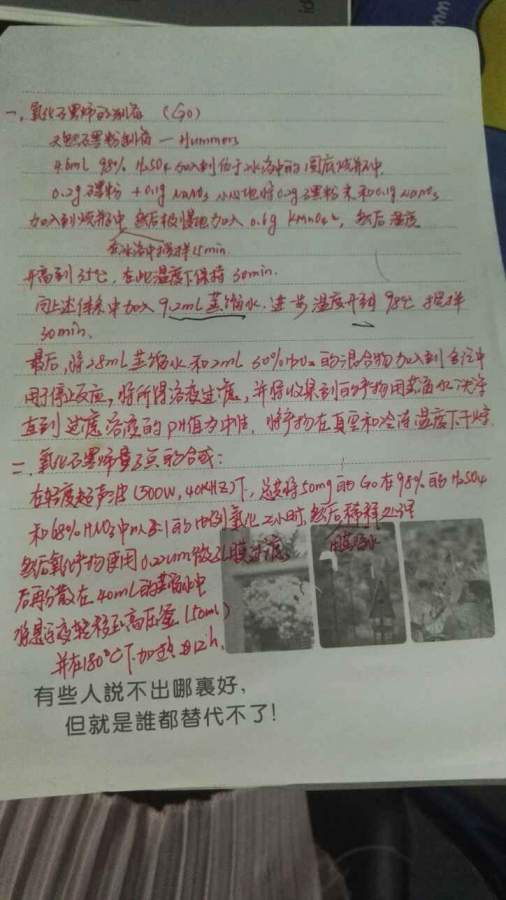 一、氧化石墨烯的制备 (GO)
天然石墨粉制备 — Hummers
4.6mL 98% H₂SO₄ 加入到位于冰浴中的圆底烧瓶中.
0.2g 石墨粉 + 0.1g NaNO₃ 小心地将0.2g石墨粉末和0.1g NaNO₃
加入到烧瓶中 然后极慢地加入 0.6g KMnO₄, 然后温度
在冰浴中搅拌15min.
升高到 35℃, 在此温度下保持 30min.
向上述体系中加入 9.2mL 蒸馏水. 进一步温度升到 98℃ 搅拌
30min.
最后, 将28mL蒸馏水和2mL 30% H₂O₂ 的混合物加入到中
用于停止反应, 将所得溶液过滤, 并将收集到的产物用蒸馏水洗涤
直到过滤溶液的pH值为中性. 将产物在真空和冷冻温度下干燥.
二、氧化石墨烯量子点的合成:
在轻度超声波 (500W, 40KHZ)下, 将50mg的 GO 在98%的H₂SO₄
和68% HNO₃ 中以3:1的比例氧化2小时, 然后稀释
用蒸馏水
然后氧化产物使用0.22um微孔膜过滤
后再分散在40mL的蒸馏水中
将悬浮液转移至高压釜 (50mL)
并在180℃下加热12h.
有些人說不出哪裏好,
但就是誰都替代不了!